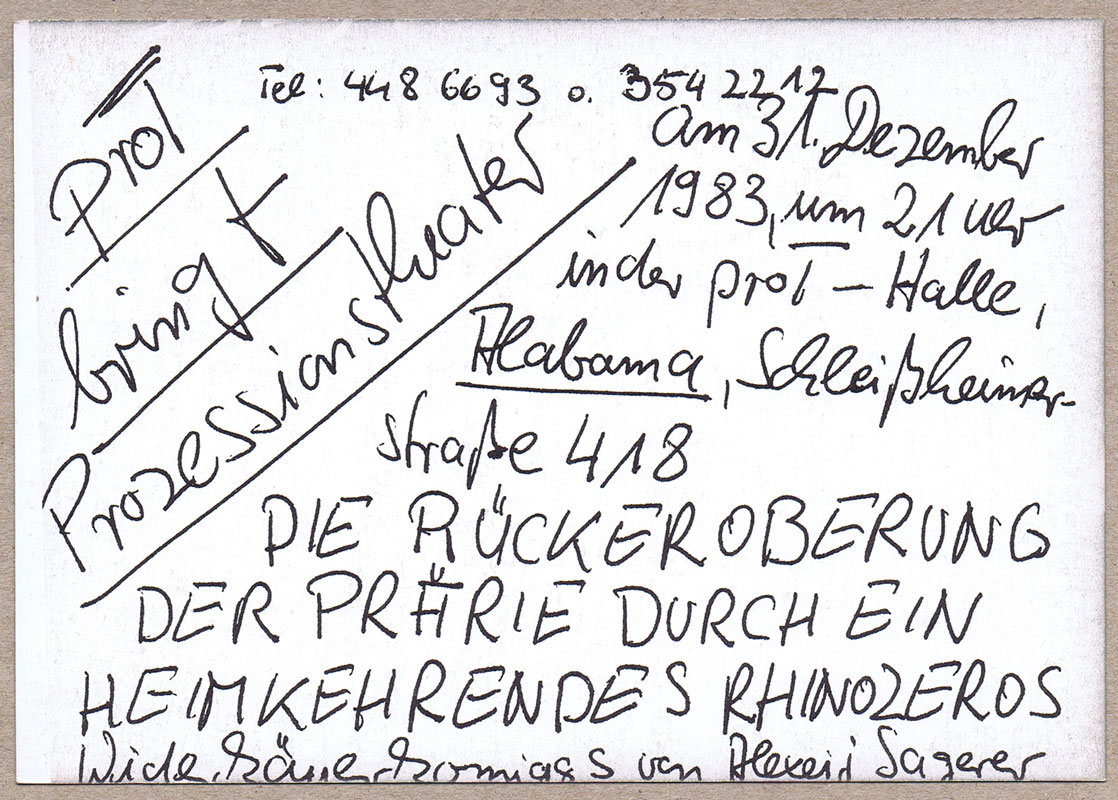 Prot
bringt
Prozessionstheater
Tel: 448 66 93 o. 354 22 12
am 31. Dezember
1983, um 21 Uhr
in der prot – Halle,
Alabama, Schleißheimer-
straße 418
DIE RÜCKEROBERUNG
DER PRÄRIE DURCH EIN
HEIMKEHRENDES RHINOZEROS
von Alexeij Sagerer